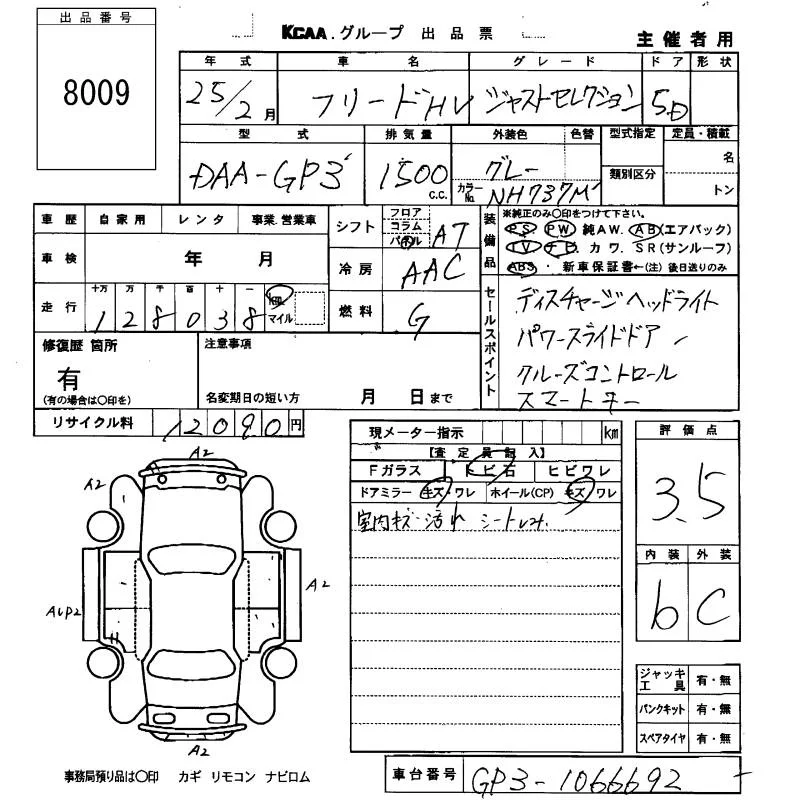 出品番号
8009
KCAA.グループ 出品票
主催者用
年式 車名 グレード ドア 形状
25/2月 フリードHV ジャストセレクション 5D
型式 排気量 外装色 色替 型式指定 定員・積載
DAA-GP3 1500 C.C. グレー 類別区分 名
カラーNo. NH737M トン
車歴 自家用 レンタ 事業.営業車
シフト フロア コラム パネル AT
装備品 ※純正のみ○印をつけて下さい。
PS PW 純AW. AB(エアバック)
TV ナビ カワ. SR(サンルーフ)
ABS ・新車保証書←(注)後日送りのみ
車検 年 月
冷房 AAC
走行 十万 万 千 百 十 一 km マイル
128038
燃料 G
セールスポイント
ディスチャージヘッドライト
パワースライドドア
クルーズコントロール
スマートキー
修復歴 箇所
有
(有の場合は○印を)
注意事項
名変期日の短い方 月 日まで
リサイクル料 12090円
現メーター指示 km
【査定員記入】
Fガラス トビ石 ヒビワレ
ドアミラー キズ・ワレ ホイール(CP) キズ・ワレ
室内キズ・汚れ
評価点
3.5
内装 外装
b C
A2
A2
A2
AUP2
A2
ジャッキ工具 有・無
パンクキット 有・無
スペアタイヤ 有・無
事務局預り品は○印 カギ リモコン ナビロム
車台番号 GP3-1066692